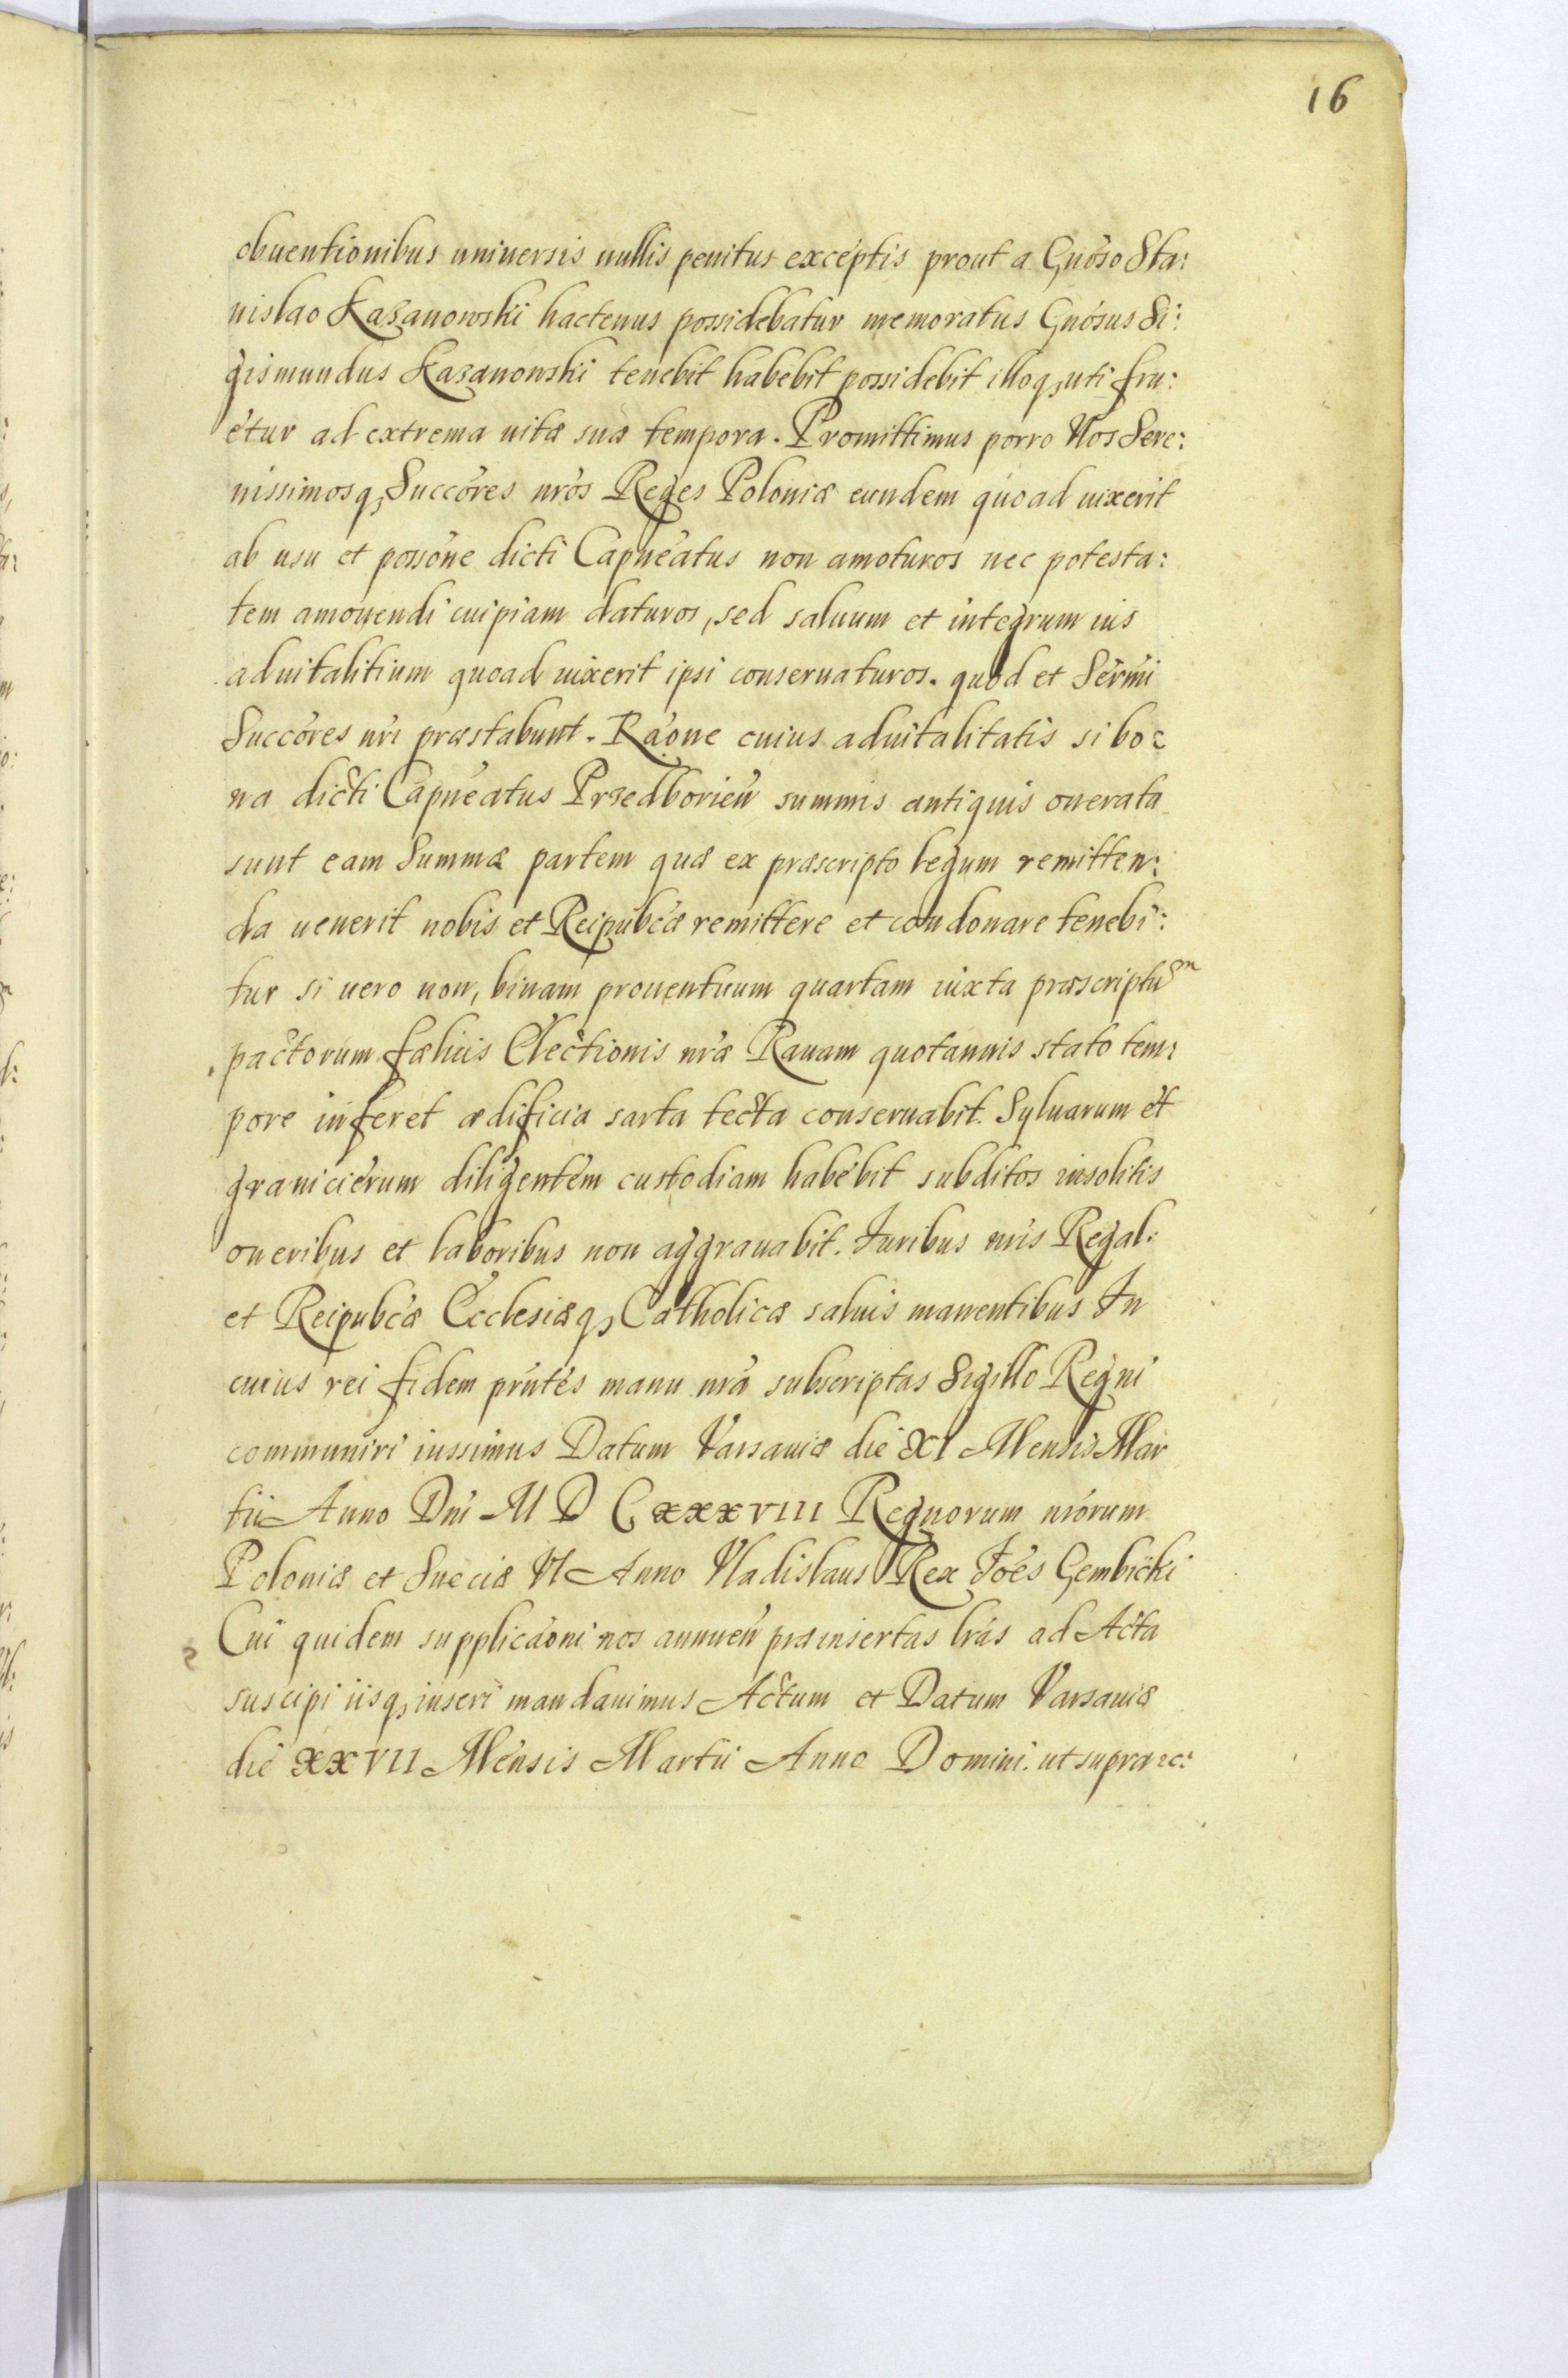 16
obuentionibus uniuersis nullis penitus exceptis prout a Gnoso Sta:
nislao Kazanowski hactenus possidebatur memoratus Gnosus Si:
gismundus Kazanowski tenebit habebit possidebit illoq, uti fru:
etur ad extrema uitæ suæ tempora. Promittimus porro Nos Sere:
nissimosq, Succores nros Reges Poloniæ eundem quoad uixerit
ab usu et possone dicti Capneatus non amoturos nec potesta:
tem amouendi cuipiam daturos, sed saluum et integrum ius
aduitalitium quoad uixerit ipsi conseruaturos. quod et Sermi
Succores nri præstabunt. Raone cuius aduitalitatis si bo:
na dicti Capneatus Przedborien summis antiquis onerata
sunt eam Summæ partem quæ ex præscripto legum remitten:
da uenerit nobis et Reipubcæ remittere et condonare tenebi:
tur si uero non, binam prouentuum quartam iuxta præscriptum
pactorum fælicis Electionis nræ Rauam quotannis stato tem:
pore inferet ædificia sarta tecta conseruabit. Syluarum et
granicierum diligentem custodiam habebit subditos insolitis
oneribus et laboribus non aggrauabit. Iuribus nris Regal:
et Reipubcæ Ecclesiæq, Catholicæ saluis manentibus In
cuius rei fidem prntes manu nra subscriptas Sigillo Regni
communiri iussimus Datum Varsauiæ die XI Mensis Mar
tii Anno Dni M D C XXXVIII Regnorum nrorum
Poloniæ et Sueciæ VI Anno Vladislaus Rex Joes Gembicki
Cui quidem supplicaoni nos annuen præinsertas lras ad Acta
suscipi iisq, inseri mandauimus Actum et Datum Varsauiæ
die XXVII Mensis Martii Anno Domini. ut supra &c: